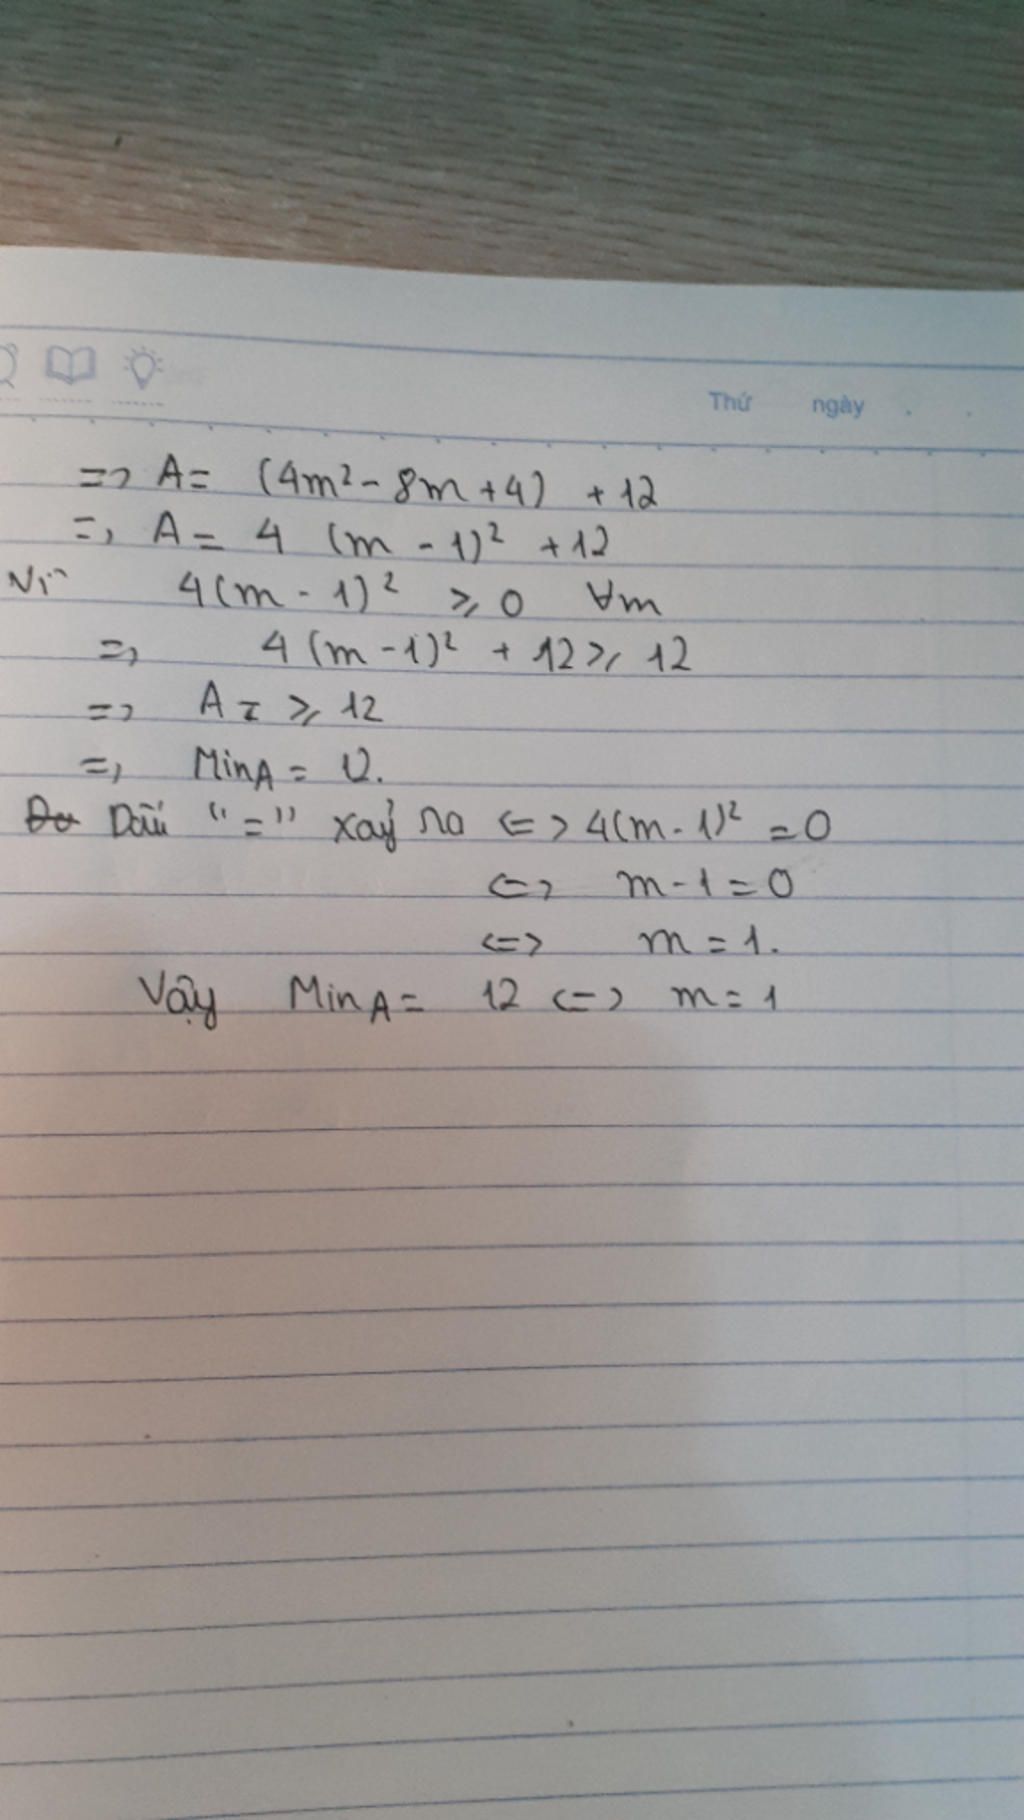 Thứ ngày
=> A = (4m² - 8m + 4) + 12
=> A = 4 (m - 1)² + 12
Vì 4(m - 1)² ≥ 0 ∀m
=> 4(m - 1)² + 12 ≥ 12
=> A = ≥ 12
=> Min A = 12.
Dấu "=" xảy ra <=> 4(m - 1)² = 0
<=> m - 1 = 0
<=> m = 1.
Vậy Min A = 12 <=> m = 1